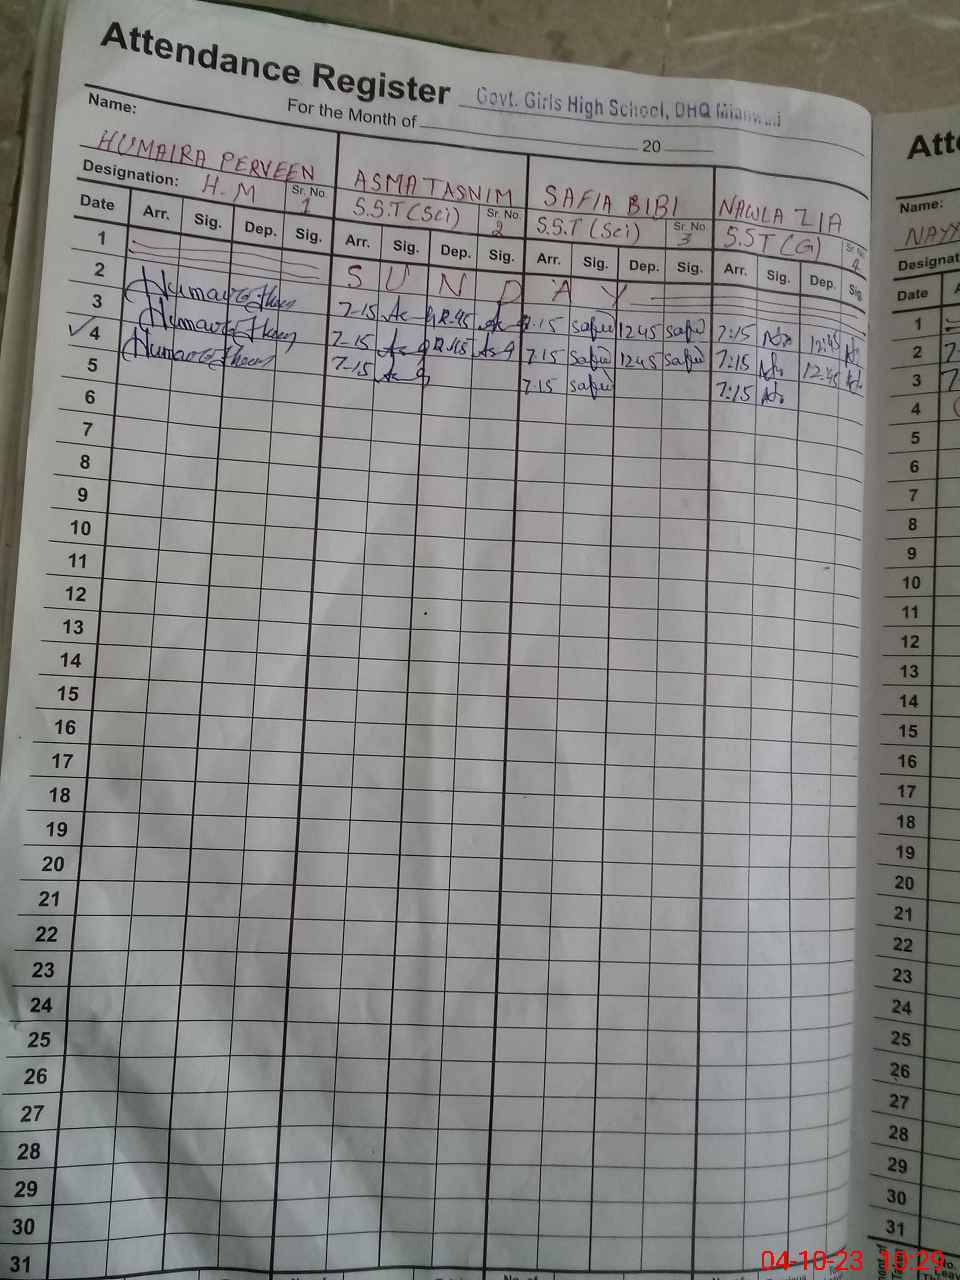 Attendance Register Govt. Girls High School, DHQ Mianwali
For the Month of 20
Name:
HUMAIRA PERVEEN ASMA TASNIM SAFIA BIBI NAWLA ZIA
Designation: H.M Sr. No. 1 S.S.T (Sci) Sr. No. 2 S.S.T (Sci) Sr. No. 3 S.S T (G) Sr. No. 4
Date Arr. Sig. Dep. Sig. Arr. Sig. Dep. Sig. Arr. Sig. Dep. Sig. Arr. Sig. Dep. Sig.
1 S U N D A Y
2 7-15 12-45 7.15 Safia 12 45 Safia 7:15 12:45
3 7-15 12-45 7.15 Safia 12 45 Safia 7:15 12:45
4 7-15 7.15 Safia 7:15
5
6
7
8
9
10
11
12
13
14
15
16
17
18
19
20
21
22
23
24
25
26
27
28
29
30
31
Name:
Date
1
2
3
4
5
6
7
8
9
10
11
12
13
14
15
16
17
18
19
20
21
22
23
24
25
26
27
28
29
30
31
04-10-23 10:29